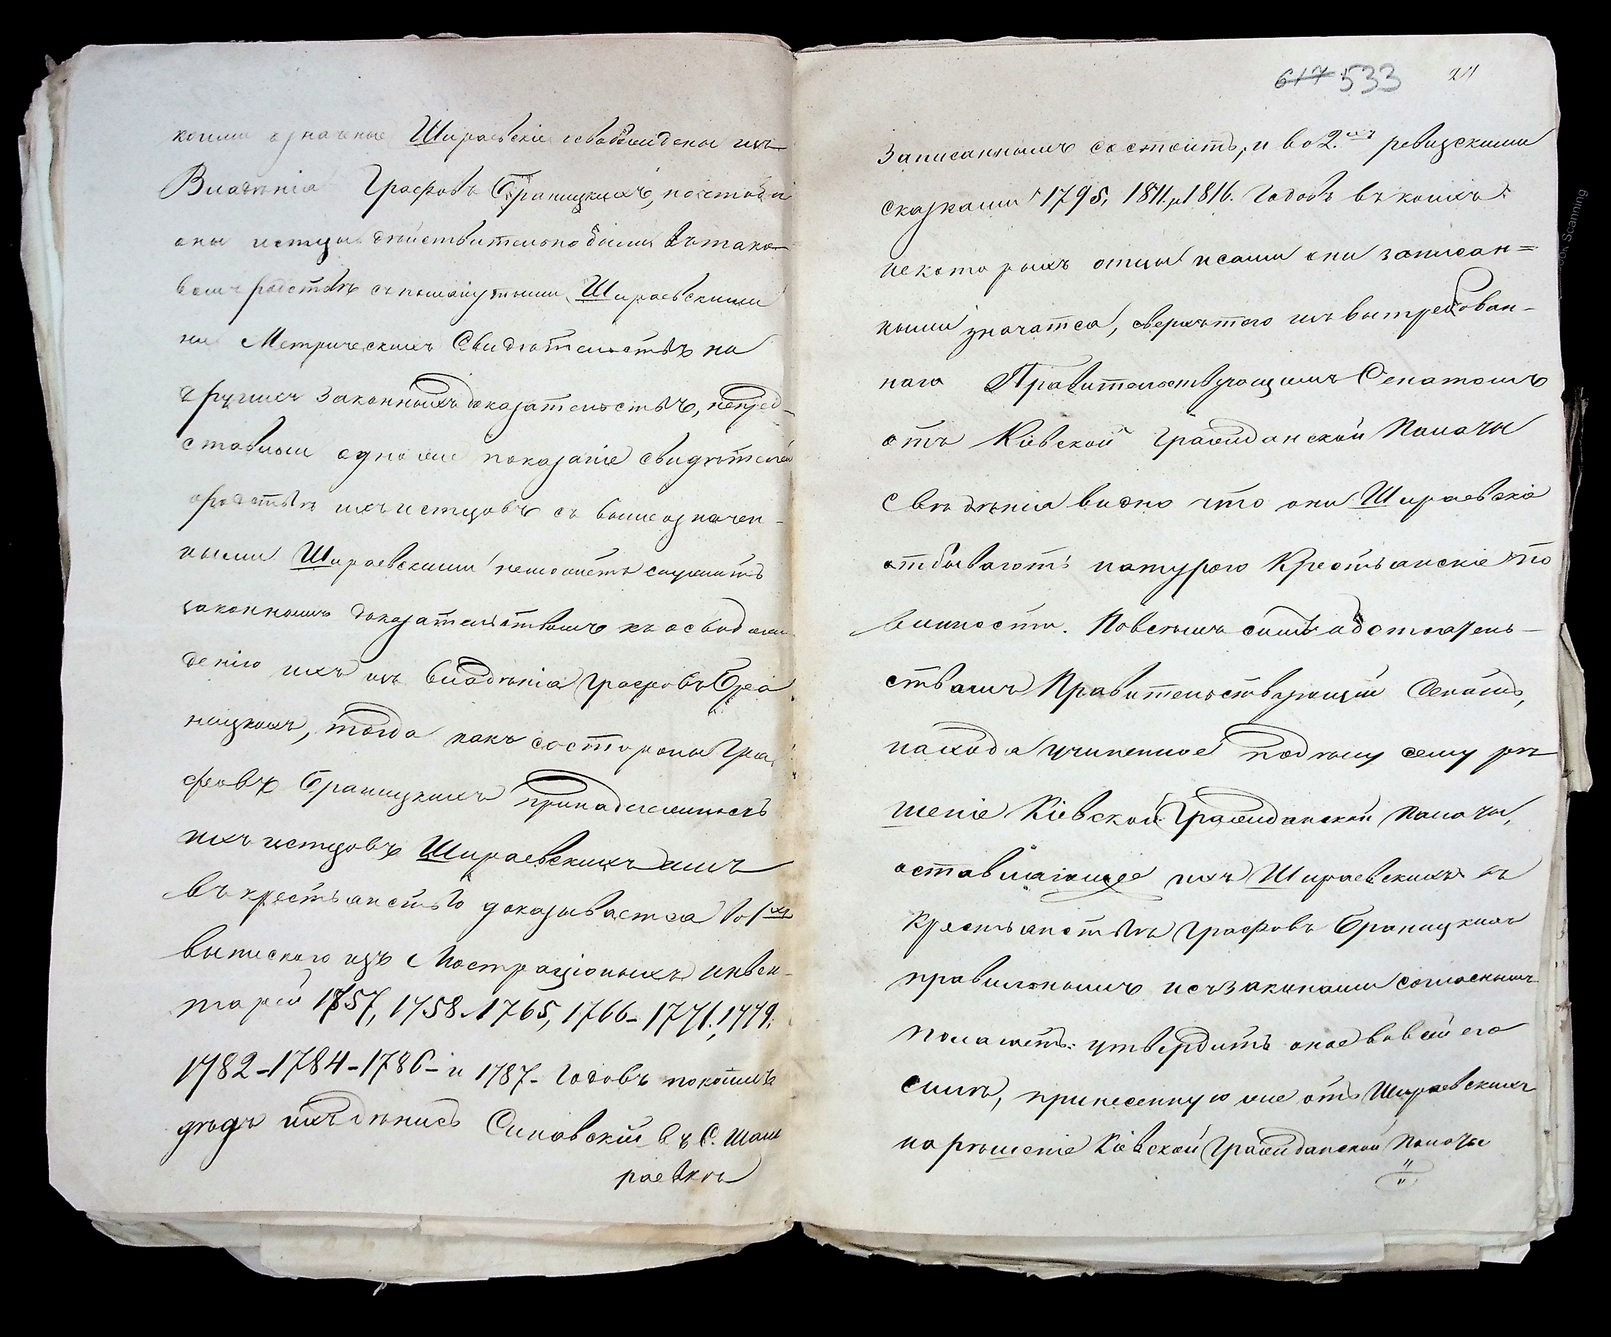 коими означеные Шираевскіе освобождены изъ
Владѣнія Графовъ Браницкихъ, поистовы
оны истцы дѣйствительно были въ тако-
вомъ родствѣ съ помянутыми Шираевскими
ни Метрическихъ Свидѣтельствъ ни
другихъ законныхъ доказательствъ, непред-
ставили одно же показаніе свидѣтелей
ородствѣ ихъ истцовъ съ вышеозначен-
ными Шираевскими неможетъ служить
законнымъ доказательствомъ къ освобож-
денію ихъ изъ владѣнія Графовъ Бра
ницкихъ, тогда какъ состороны Гра
фовъ Браницкихъ принадлежность
ихъ истцовъ Шираевскихъ имъ
въ крестьянство доказывается во 1хъ
выпискою изъ Люстраціонныхъ инвен-
тарей 1757, 1758. 1765, 1766- 1771, 1779;
1782-1784-1786- и 1787- Годовъ покоимъ
дѣдъ ихъ Денисъ Синовскій въ С. Шам
раевкѣ
617 533
Записаннымъ состоитъ, и во 2.хъ ревизскими
сказками 1795, 1811, 1816. Годовъ въ коихъ
некоторыхъ отцы исами они записан=
ными значатся, сверхътого изъ вытребован-
наго Правительствующимъ Сенатомъ
отъ Кіевской Гражданской Палаты
Свѣдѣнія видно что они Шираевскіе
отбываютъ натурою Крестьянскіе по
винности. Повсемъ симъ обстоятель-
ствамъ Правительствующій Сенатъ,
находя учиненное подѣлу сему рѣ
шеніе Кіевской Гражданской Палаты,
оставляющее ихъ Шираевскихъ въ
крестьянствѣ Графовъ Браницкихъ
правильнымъ исъ законами согласнымъ
Полагаетъ: утвердить оное вовсей его
силѣ, принесенную же отъ Шираевскихъ
на рѣшеніе Кіевской Гражданской Палаты